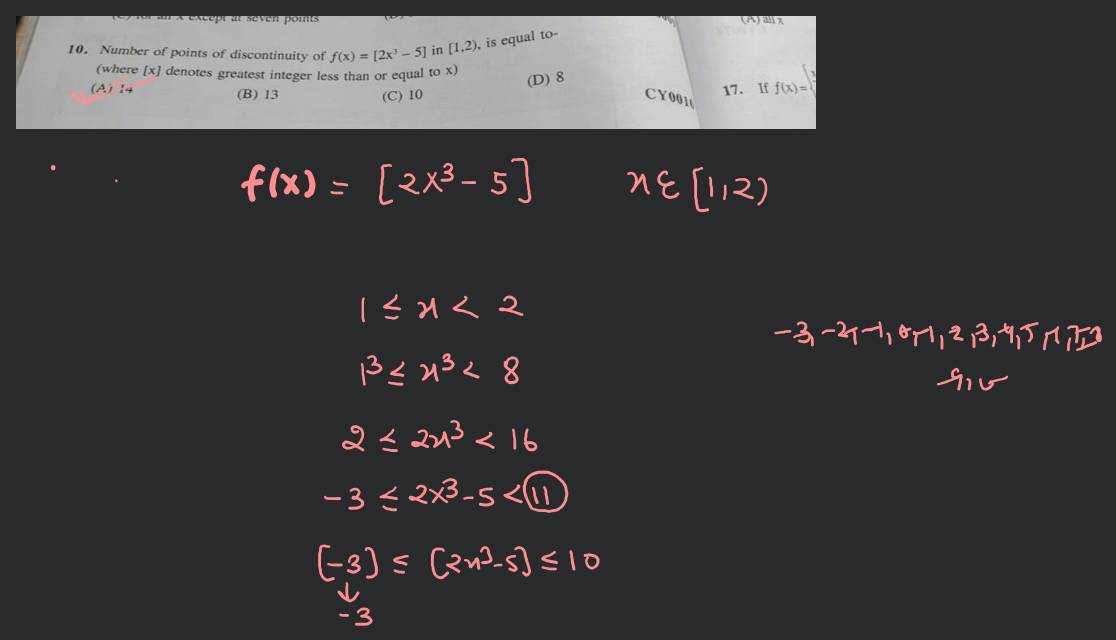 (C) for all x except at seven points
(A) all x
10. Number of points of discontinuity of f(x) = [2x³ – 5] in [1,2), is equal to-
(where [x] denotes greatest integer less than or equal to x)
(A) 14 (B) 13 (C) 10 (D) 8
CY001
17. If f(x)=
f(x) = [2x³ – 5] x ε [1,2)
1 ≤ x < 2
1³ ≤ x³ < 8
2 ≤ 2x³ < 16
-3 ≤ 2x³-5 < 11
[-3] ≤ [2x³-5] ≤ 10
↓
-3
-3, -2, -1, 0, 1, 2, 3, 4, 5